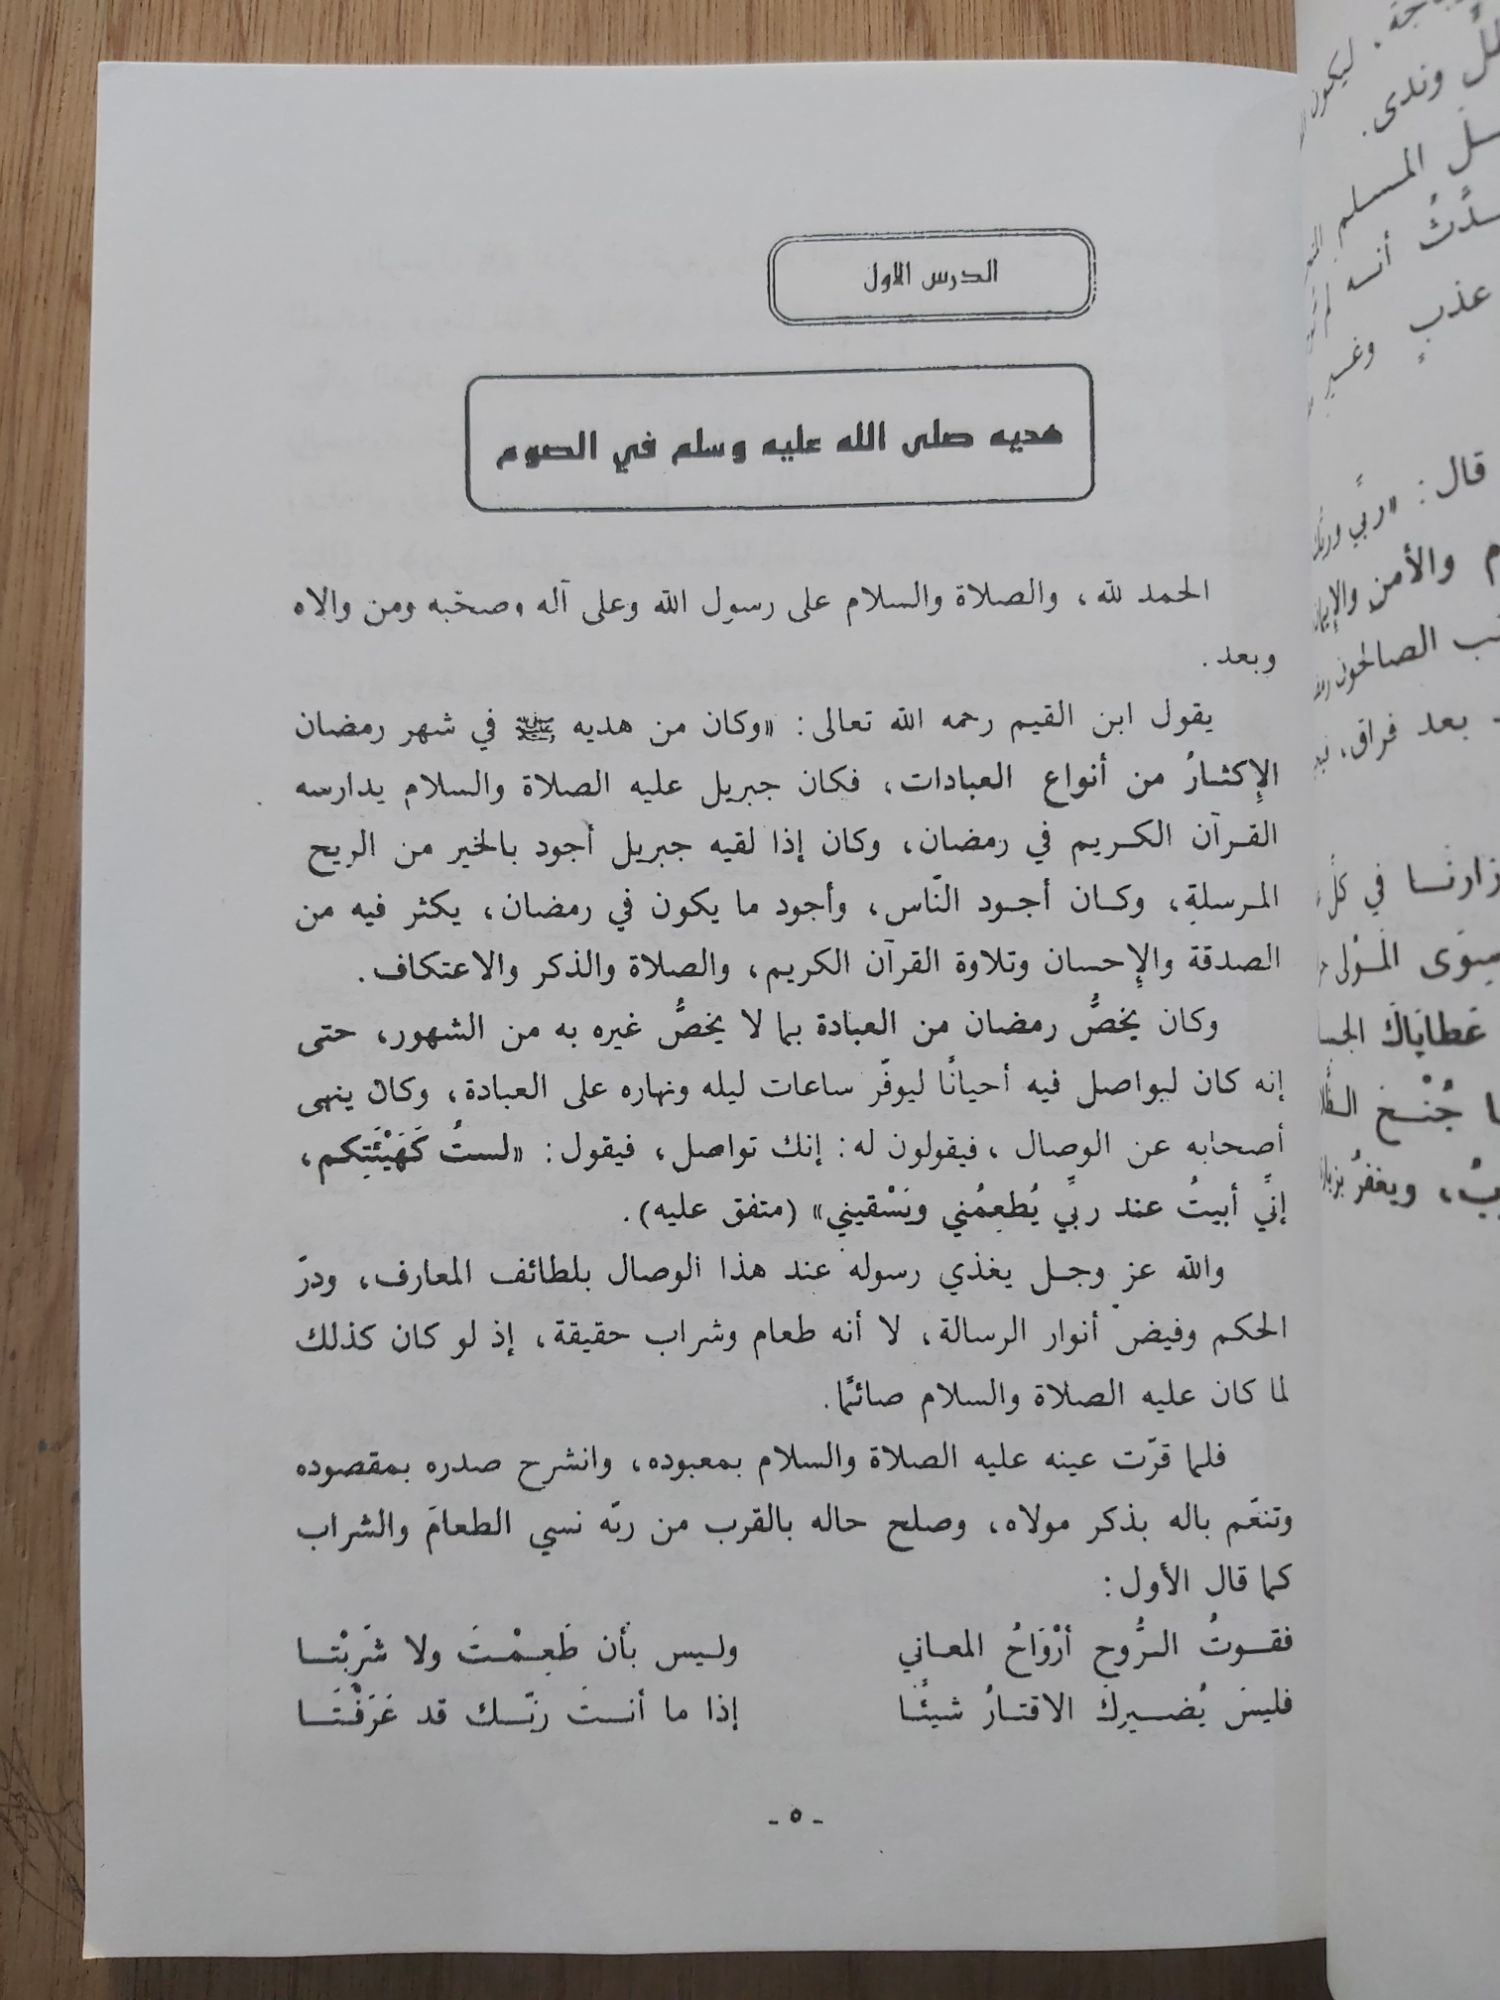 الدرس الأول
هديه صلى الله عليه وسلم في الصوم
الحمد لله، والصلاة والسلام على رسول الله وعلى آله وصحبه ومن والاه
وبعد.
يقول ابن القيم رحمه الله تعالى: «وكان من هديه ﷺ في شهر رمضان
الإكثارُ من أنواع العبادات، فكان جبريل عليه الصلاة والسلام يدارسه
القرآن الكريم في رمضان، وكان إذا لقيه جبريل أجود بالخير من الريح
المرسلة، وكان أجود النّاس، وأجود ما يكون في رمضان، يكثر فيه من
الصدقة والإحسان وتلاوة القرآن الكريم، والصلاة والذكر والاعتكاف.
وكان يخصُّ رمضان من العبادة بما لا يخصُّ غيره به من الشهور، حتى
إنه كان ليواصل فيه أحيانًا ليوفّر ساعات ليله ونهاره على العبادة، وكان ينهى
أصحابه عن الوصال، فيقولون له: إنك تواصل، فيقول: «لستُ كَهَيْئَتِكم،
إنّي أبيتُ عند ربّي يُطعِمُني ويَسْقيني» (متفق عليه).
والله عز وجل يغذي رسوله عند هذا الوصال بلطائف المعارف، ودرّ
الحكم وفيض أنوار الرسالة، لا أنه طعام وشراب حقيقة، إذ لو كان كذلك
لما كان عليه الصلاة والسلام صائمًا.
فلما قرّت عينه عليه الصلاة والسلام بمعبوده، وانشرح صدره بمقصوده
وتنعّم باله بذكر مولاه، وصلح حاله بالقرب من ربّه نسي الطعامَ والشراب
كما قال الأول:
فقوتُ الرُّوحِ أرْوَاحُ المعاني وليس بأن طَعِمْتَ ولا شَرِبْتا
فليسَ يُضيركَ الاقتارُ شيئًا إذا ما أنتَ ربّك قد عَرَفْتَا
- ٥ -
ليكون
وندى.
المسلم
أنسه
عذبٍ وغير
قال: «ربّي وربّك
والأمن والإيمان
الصالحون
بعد فراق،
زارنا في كلّ
سِوَى المَوْلى
عَطايَاكَ
جُنْح
ويغفرُ